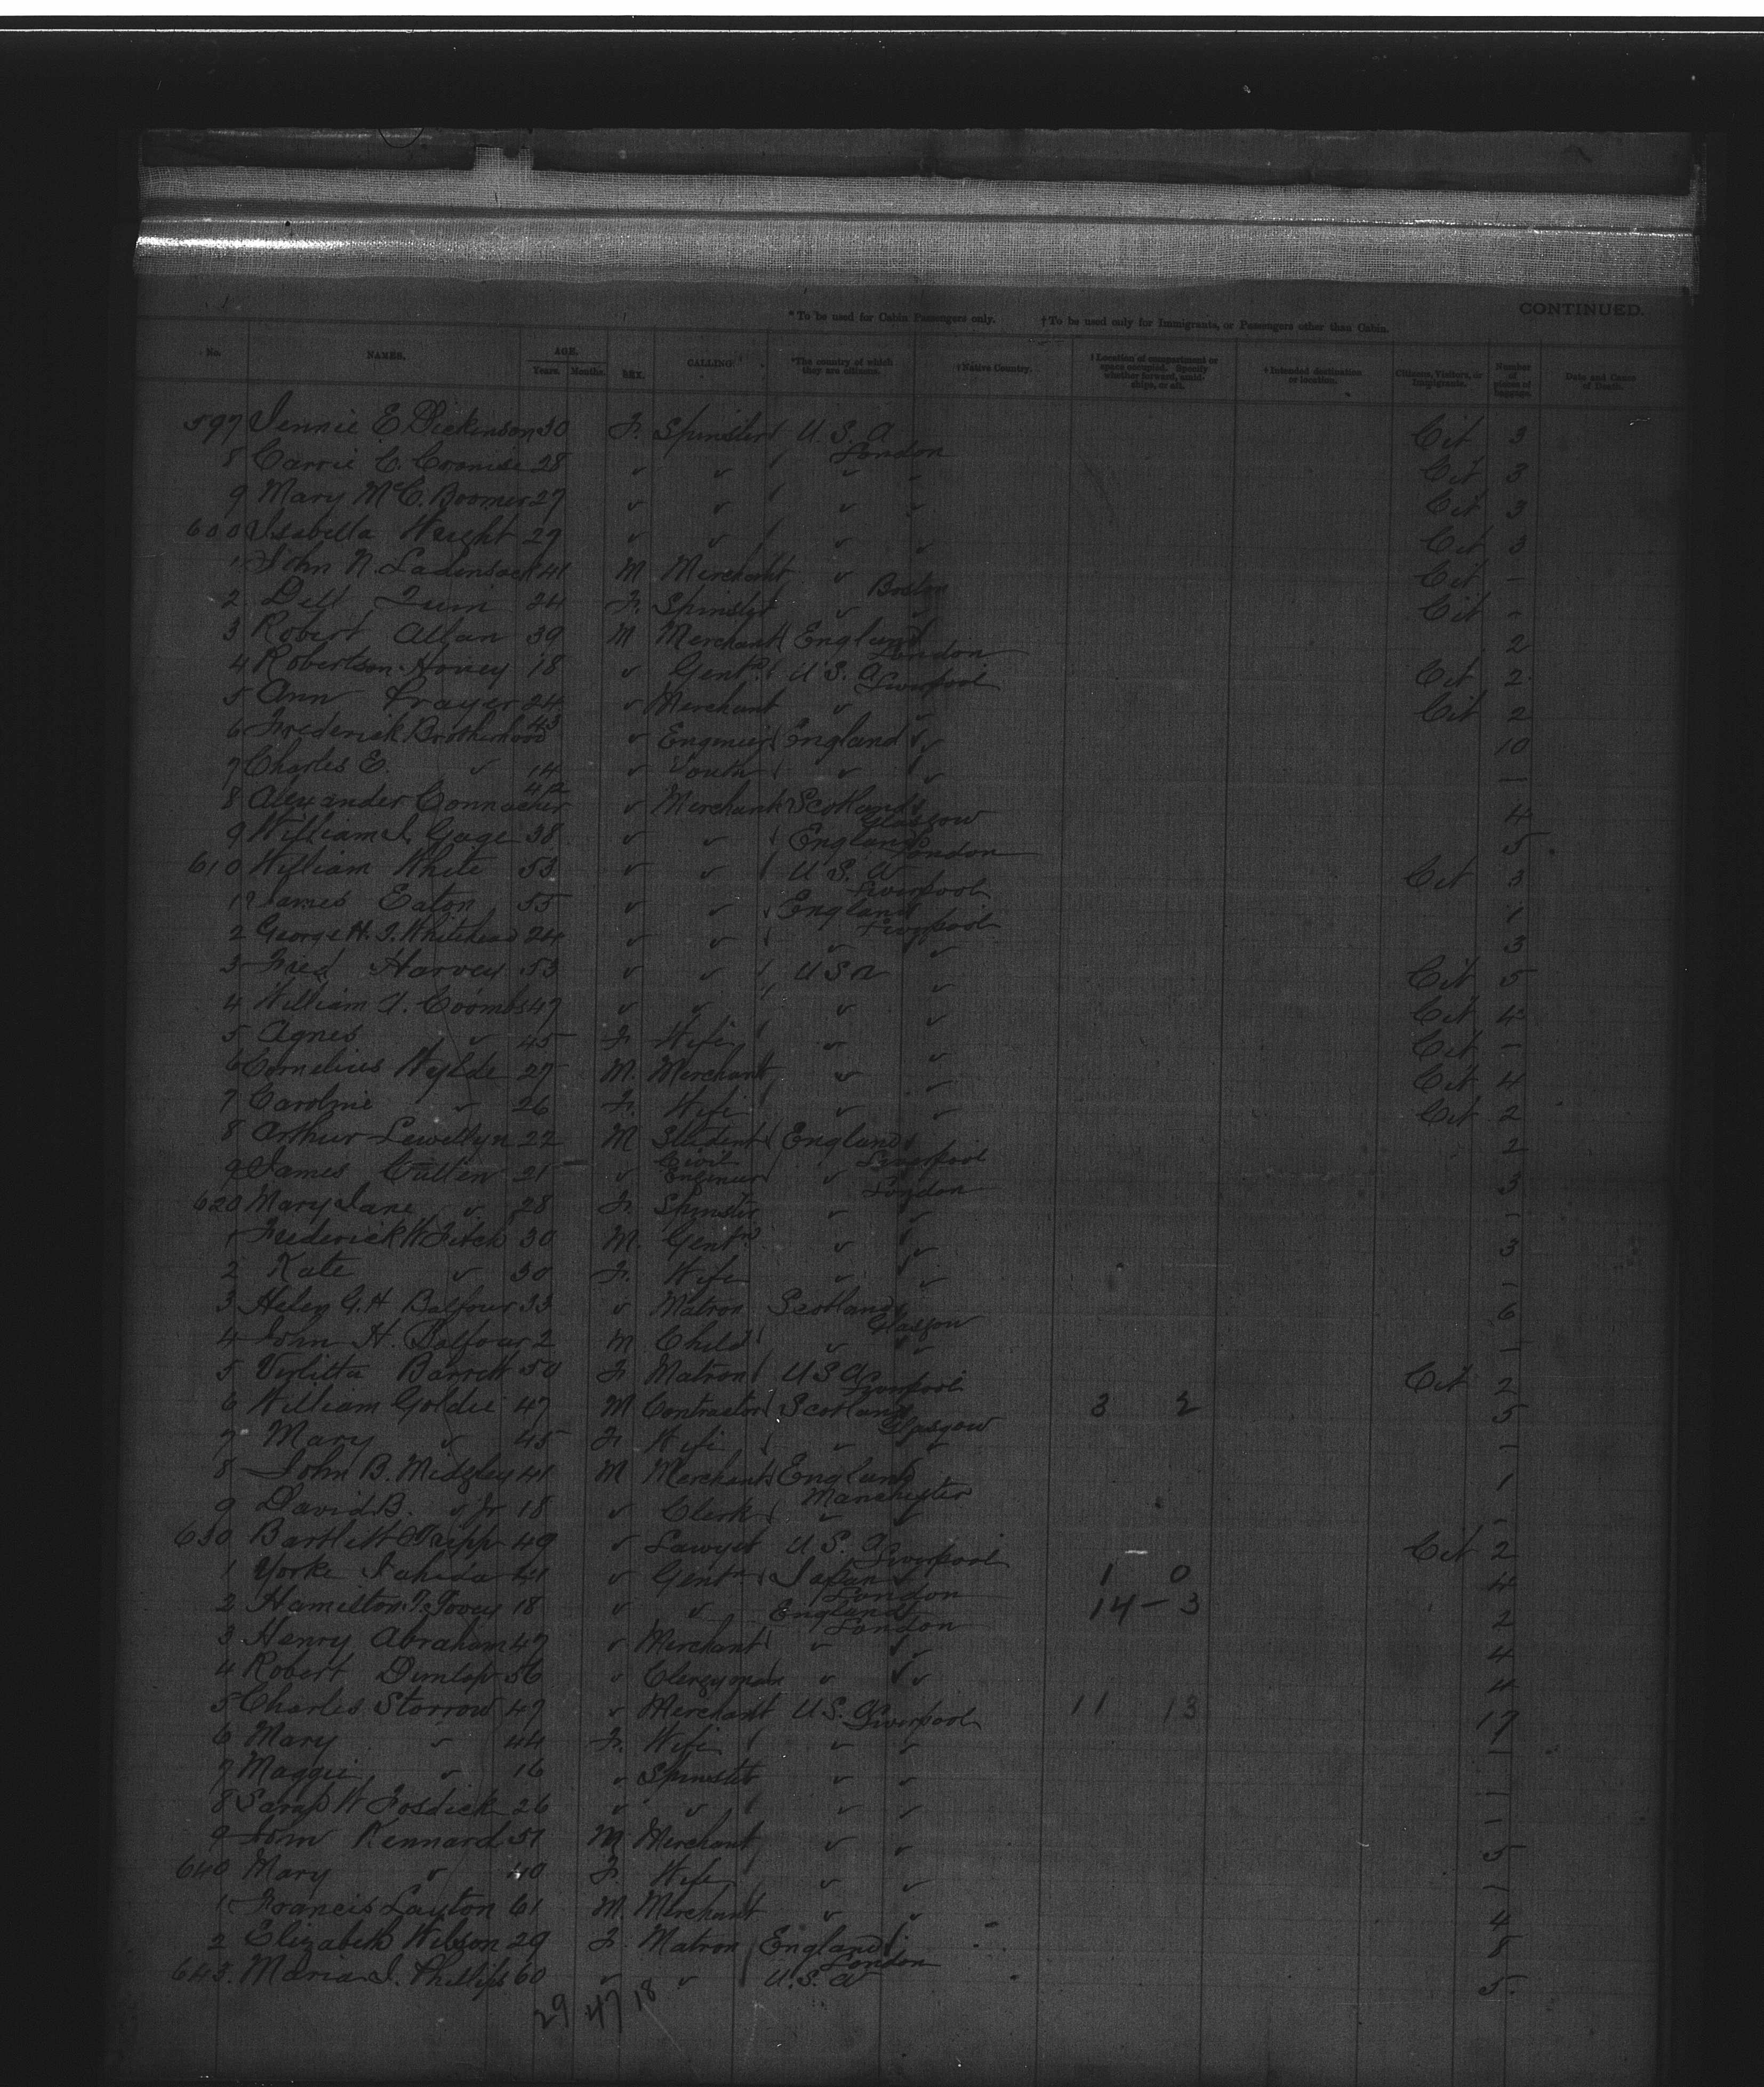 CONTINUED.
* To be used for Cabin Passengers only. † To be used only for Immigrants, or Passengers other than Cabin.
No. NAMES. AGE. Years. Months. SEX. CALLING *The country of which they are citizens. †Native Country. †Location of compartment or space occupied. Specify whether forward, amidships, or aft. †Intended destination or location. Citizens, Visitors, or Immigrants. Number of pieces of baggage. Date and Cause of Death.
597 Jennie E Dickinson 30 F. Spinster U. S. A London Cit 3
8 Carrie C. 28 ✓ ✓ ✓ Cit 3
9 Mary McC. Boomer 27 ✓ ✓ ✓ ✓ Cit 3
600 Isabella Wright 29 ✓ ✓ ✓ ✓ Cit 3
1 John N. 41 M Merchant ✓ Boston Cit -
2 Dell 24 F. Spinster ✓ ✓ Cit -
3 Robert Allan 39 M Merchant England London 2
4 Robertson Honey 18 ✓ Gent U. S. A Liverpool Cit 2
5 Ann 24 ✓ Merchant ✓ ✓ Cit 2
6 Frederick Brotherhood 43 ✓ Engineer England ✓ 10
7 Charles E. ✓ 14 ✓ Youth ✓ ✓ —
8 Alexander Connacher 42 ✓ Merchant Scotland Glasgow 4
9 William J. Gage 38 ✓ ✓ England London 5
610 William White 53 ✓ ✓ U. S. A Liverpool Cit 3
1 James Eaton 55 ✓ ✓ England Liverpool 1
2 George H. J. Whitehead 24 ✓ ✓ ✓ ✓ 3
3 Fred Harvey 53 ✓ ✓ U S A ✓ Cit 5
4 William J. Coombs 47 ✓ ✓ ✓ ✓ Cit 4
5 Agnes ✓ 45 F. Wife ✓ ✓ Cit -
6 Cornelius Wylde 27 M. Merchant ✓ ✓ Cit 4
7 Caroline ✓ 26 F. Wife ✓ ✓ Cit 2
8 Arthur Lewellyn 22 M Student England Liverpool 2
9 James Cullen 21 ✓ Civil Engineer ✓ London 3
620 Mary Jane ✓ 28 F. Spinster ✓ ✓ -
1 Frederick W Fitch 30 M. Gentn ✓ ✓ 3
2 Kate ✓ 30 F. Wife ✓ ✓ -
3 Helen G. H Balfour 33 ✓ Matron Scotland Glasgow 6
4 John H. Balfour 2 M Child ✓ ✓ —
5 Barrett 50 F Matron U S A Liverpool Cit 2
6 William Goldie 47 M Contractor Scotland Glasgow 3 2 5
7 Mary ✓ 45 F. Wife ✓ ✓ -
8 John B. Midgley 41 M Merchant England Manchester 1
9 David B. ✓ Jr 18 ✓ Clerk ✓ ✓ -
630 Bartlett Tripp 49 ✓ Lawyer U. S. A Liverpool Cit 2
1 Yorke 41 ✓ Gentn Japan London 1 0 4
2 Hamilton T. Tovey 18 ✓ ✓ England London 14 - 3 2
3 Henry Abraham 47 ✓ Merchant ✓ ✓ 4
4 Robert Dunlop 56 ✓ Clergyman ✓ ✓ 4
5 Charles Storrow 47 ✓ Merchant U. S. A Liverpool 11 13 17
6 Mary ✓ 44 F. Wife ✓ ✓ —
7 Maggie ✓ 16 ✓ Spinster ✓ ✓ —
8 Sarah W Fosdick 26 ✓ ✓ ✓ ✓ -
9 John Kennard 51 M Merchant ✓ ✓ 5
640 Mary ✓ 40 F. Wife ✓ ✓ -
1 Francis Layton 61 M Merchant ✓ ✓ 4
2 Elizabeth Wilson 29 F. Matron England London 8
643. Maria J. Phillips 60 ✓ ✓ U. S. A 5.
29 47 18